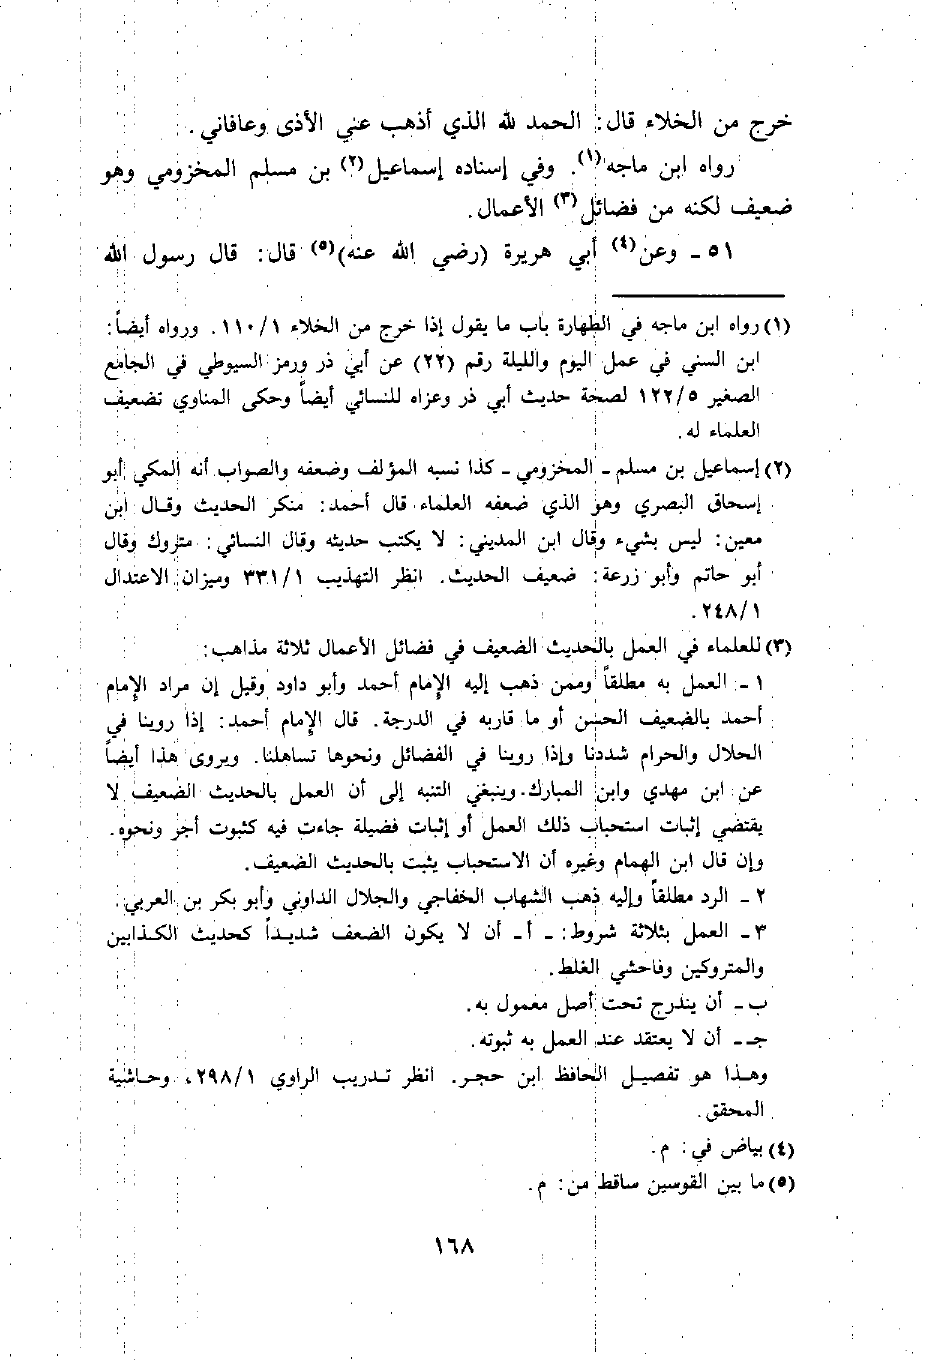 خرج من الخلاء قال: الحمد لله الذي أذهب عني الأذى وعافاني.
رواه ابن ماجه(١). وفي إسناده إسماعيل(٢) بن مسلم المخزومي وهو
ضعيف لكنه من فضائل(٣) الأعمال.
٥١ ـ وعن(٤) أبي هريرة (رضي الله عنه)(٥) قال: قال رسول الله
(١) رواه ابن ماجه في الطهارة باب ما يقول إذا خرج من الخلاء ١١٠/١. ورواه أيضاً:
ابن السني في عمل اليوم والليلة رقم (٢٢) عن أبي ذر ورمز السيوطي في الجامع
الصغير ١٢٢/٥ لصحة حديث أبي ذر وعزاه للنسائي أيضاً وحكى المناوي تضعيف
العلماء له.
(٢) إسماعيل بن مسلم ـ المخزومي ـ كذا نسبه المؤلف وضعفه والصواب أنه المكي أبو
إسحاق البصري وهو الذي ضعفه العلماء قال أحمد: منكر الحديث وقال ابن
معين: ليس بشيء وقال ابن المديني: لا يكتب حديثه وقال النسائي: متروك وقال
أبو حاتم وأبو زرعة: ضعيف الحديث. انظر التهذيب ٣٣١/١ وميزان الاعتدال
٢٤٨/١.
(٣) للعلماء في العمل بالحديث الضعيف في فضائل الأعمال ثلاثة مذاهب:
١ ـ العمل به مطلقاً وممن ذهب إليه الإمام أحمد وأبو داود وقيل إن مراد الإمام
أحمد بالضعيف الحسن أو ما قاربه في الدرجة. قال الإمام أحمد: إذا روينا في
الحلال والحرام شددنا وإذا روينا في الفضائل ونحوها تساهلنا. ويروى هذا أيضاً
عن ابن مهدي وابن المبارك. وينبغي التنبه إلى أن العمل بالحديث الضعيف لا
يقتضي إثبات استحباب ذلك العمل أو إثبات فضيلة جاءت فيه كثبوت أجر ونحوه.
وإن قال ابن الهمام وغيره أن الاستحباب يثبت بالحديث الضعيف.
٢ ـ الرد مطلقاً وإليه ذهب الشهاب الخفاجي والجلال الداوني وأبو بكر بن العربي.
٣ ـ العمل بثلاثة شروط: ـ أ ـ أن لا يكون الضعف شديداً كحديث الكذابين
والمتروكين وفاحشي الغلط.
ب ـ أن يندرج تحت أصل معمول به.
جـ ـ أن لا يعتقد عند العمل به ثبوته.
وهذا هو تفصيل الحافظ ابن حجر. انظر تدريب الراوي ٢٩٨/١، وحاشية
المحقق.
(٤) بياض في: م.
(٥) ما بين القوسين ساقط من: م.
١٦٨